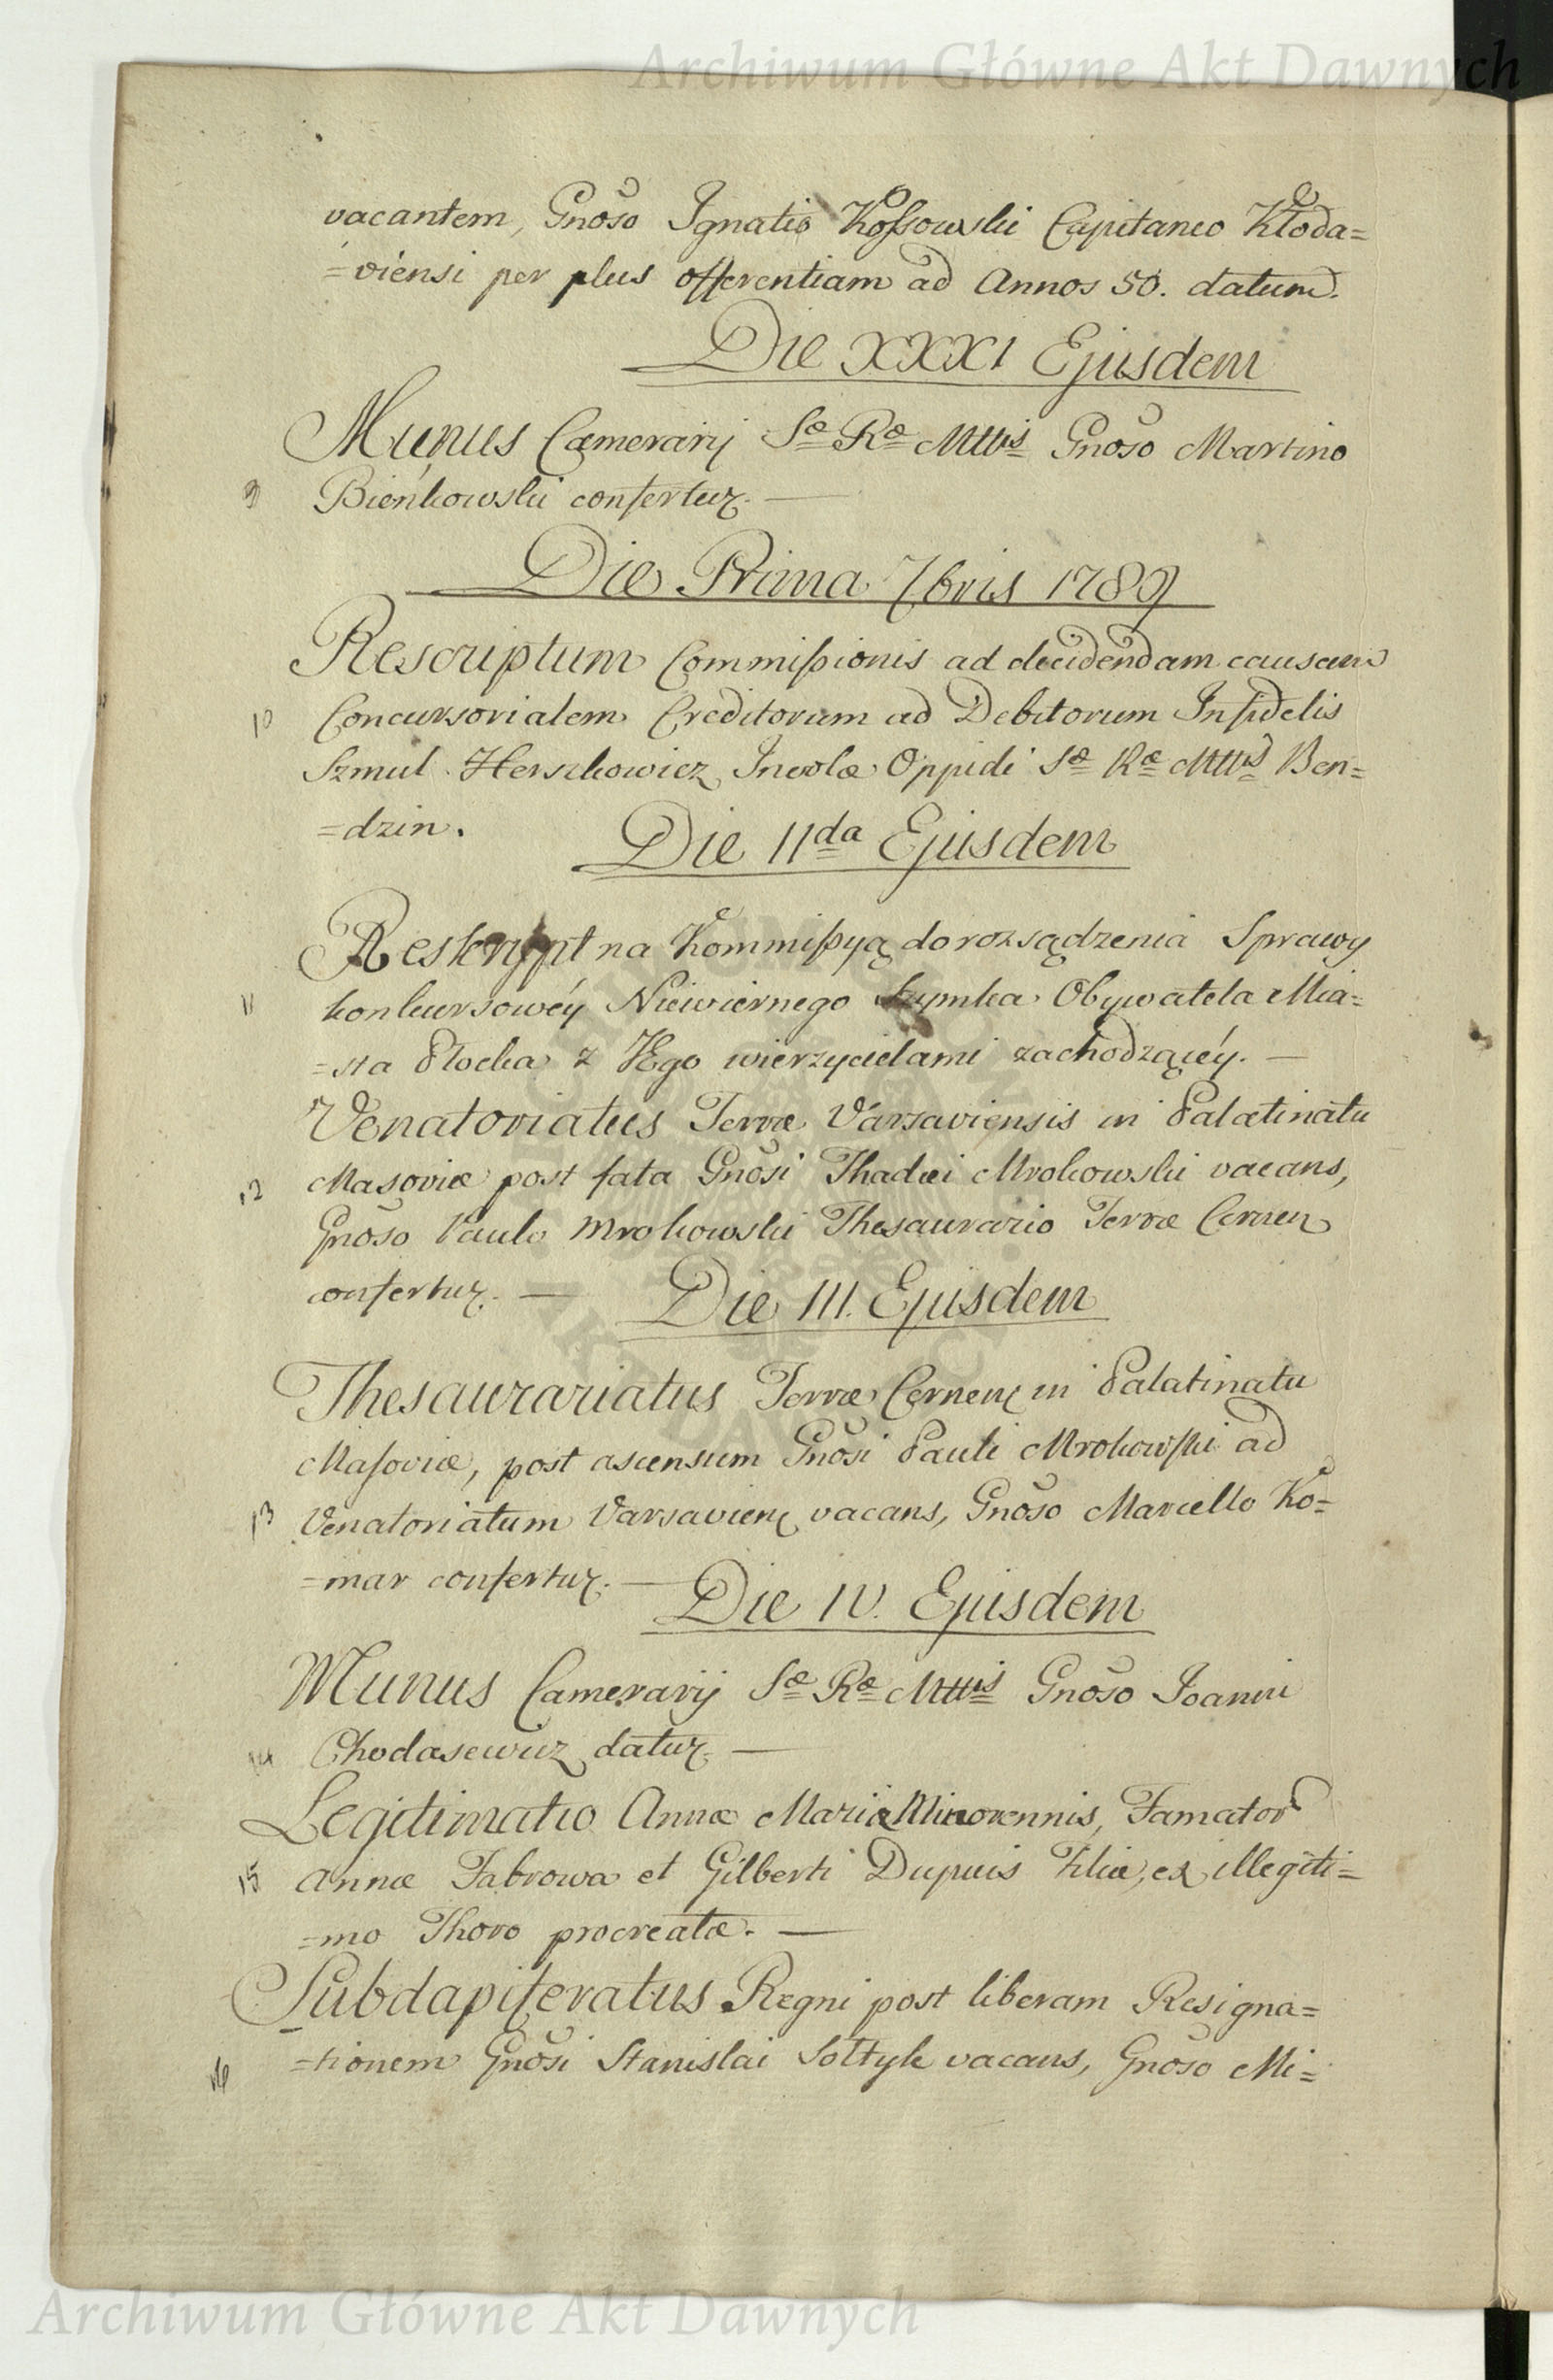 Archiwum Główne Akt Dawnych
vacantem, Gnoso Ignatio Kossowski Capitaneo Kłoda=
=viensi per plus offerentiam ad Annos 50. datum.
Die XXXI Ejusdem
Munus Camerarij Sæ Ræ Mttis Gnoso Martino
9 Bieńkowski confertur. —
Die Prima 7bris 1789
Rescriptum Commissionis ad decidendam causam
10 Concursorialem Creditorum ad Debitorum Infidelis
Szmul Herszkowicz Incolæ Oppidi Sæ Ræ Mttis Ben=
=dzin.
Die IIda Ejusdem
Reskrypt na Kommissyą do rozsądzenia Sprawy
11 konkursowéy Niewiernego Szymka Obywatela Mia=
=sta Płocka z Jego wierzycielami zachodzącéy. —
Venatoriatus Terræ Varsaviensis in Palatinatu
12 Masoviæ post fata Gnosi Thadæi Mrokowski vacans,
Gnoso Paulo Mrokowski Thesaurario Terræ Cernen
confertur. —
Die III. Ejusdem
Thesaurariatus Terræ Cernen in Palatinatu
Masoviæ, post ascensum Gnosi Pauli Mrokowski ad
13 Venatoriatum Varsavien vacans, Gnoso Marcello Ko=
=mar confertur. —
Die IV. Ejusdem
Munus Camerarij Sæ Ræ Mttis Gnoso Joanni
14 Chodasewicz datur. —
Legitimatio Annæ Mariæ Minorennis, Famator
15 Annæ Fabrowa et Gilberti Dupuis Filiæ, ex illegiti=
=mo Thoro procreatæ. —
Subdapiferatus Regni post liberam Resigna=
16 =tionem Gnosi Stanislai Sołtyk vacans, Gnoso Mi=
Archiwum Główne Akt Dawnych